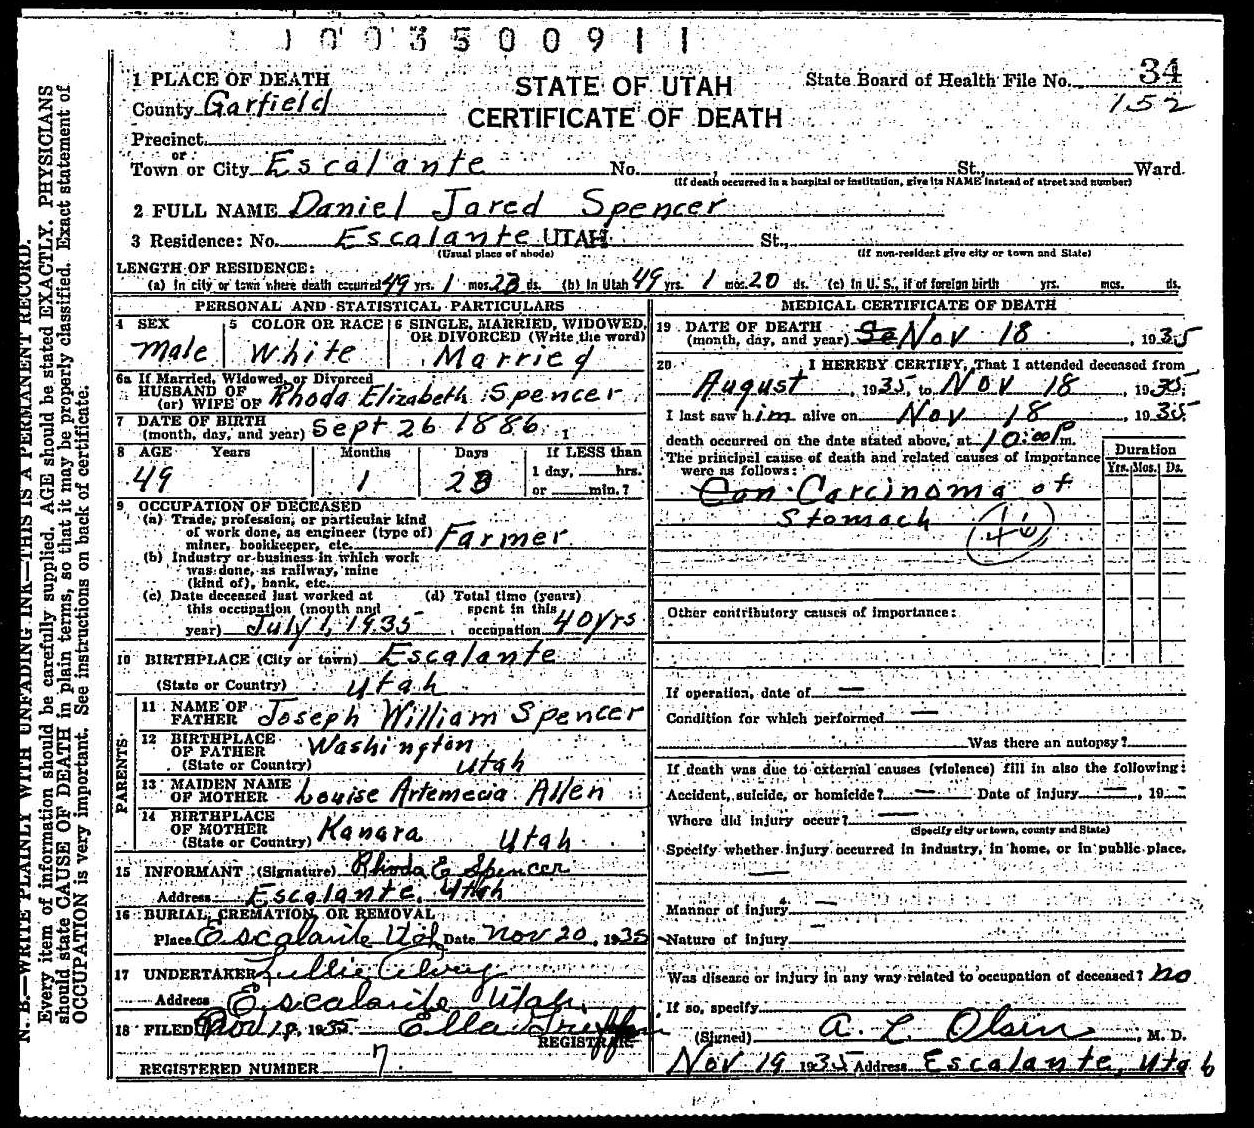 1003500911
1 PLACE OF DEATH
County Garfield
STATE OF UTAH
CERTIFICATE OF DEATH
State Board of Health File No. 34
152
Precinct
or
Town or City Escalante No. St., Ward.
(If death occurred in a hospital or institution, give its NAME instead of street and number)
2 FULL NAME Daniel Jared Spencer
3 Residence: No. Escalante UTAH St.,
(Usual place of abode) (If non-resident give city or town and State)
LENGTH OF RESIDENCE:
(a) In city or town where death occurred 49 yrs. 1 mos. 23 ds. (b) In Utah 49 yrs. 1 mos. 20 ds. (c) In U. S., if of foreign birth yrs. mos. ds.
PERSONAL AND STATISTICAL PARTICULARS
4 SEX Male
5 COLOR OR RACE White
6 SINGLE, MARRIED, WIDOWED, OR DIVORCED (Write the word) Married
6a If Married, Widowed, or Divorced
HUSBAND OF
(or) WIFE OF Rhoda Elizabeth Spencer
7 DATE OF BIRTH
(month, day, and year) Sept 26 1886
8 AGE Years Months Days If LESS than
49 1 23 1 day, hrs.
or min.?
9 OCCUPATION OF DECEASED
(a) Trade, profession, or particular kind
of work done, as engineer (type of)
miner, bookkeeper, etc. Farmer
(b) Industry or business in which work
was done, as railway, mine
(kind of), bank, etc.
(c) Date deceased last worked at
this occupation (month and
year) July 1, 1935
(d) Total time (years)
spent in this
occupation 40 yrs
10 BIRTHPLACE (City or town) Escalante
(State or Country) Utah
PARENTS
11 NAME OF
FATHER Joseph William Spencer
12 BIRTHPLACE
OF FATHER Washington
(State or Country) Utah
13 MAIDEN NAME
OF MOTHER Louise Artemecia Allen
14 BIRTHPLACE
OF MOTHER Kanara
(State or Country) Utah
15 INFORMANT (Signature) Rhoda E Spencer
Address Escalante, Utah
16 BURIAL, CREMATION, OR REMOVAL
Place Escalante Utah Date Nov 20, 1935
17 UNDERTAKER
Address Escalante Utah
18 FILED Nov 18, 1935 Ella
REGISTRAR
REGISTERED NUMBER 7
MEDICAL CERTIFICATE OF DEATH
19 DATE OF DEATH
(month, day, and year) Se Nov 18, 1935
20 I HEREBY CERTIFY, That I attended deceased from
August, 1935, to Nov 18, 1935
I last saw him alive on Nov 18 1935
death occurred on the date stated above, at 10:00 P m.
The principal cause of death and related causes of importance
were as follows:
Duration
Yrs. Mos. Ds.
Can Carcinoma of
Stomach
46
Other contributory causes of importance:
If operation, date of —
Condition for which performed —
Was there an autopsy?
If death was due to external causes (violence) fill in also the following:
Accident, suicide, or homicide? — Date of injury —, 19—
Where did injury occur? —
(Specify city or town, county and State)
Specify whether injury occurred in industry, in home, or in public place.
—
Manner of injury —
Nature of injury —
Was disease or injury in any way related to occupation of deceased? no
If so, specify
(Signed) A. L. Olsen, M. D.
Nov 19 1935 Address Escalante, Utah
N. B.—WRITE PLAINLY WITH UNFADING INK—THIS IS A PERMANENT RECORD.
Every item of information should be carefully supplied. AGE should be stated EXACTLY. PHYSICIANS
should state CAUSE OF DEATH in plain terms, so that it may be properly classified. Exact statement of
OCCUPATION is very important. See instructions on back of certificate.